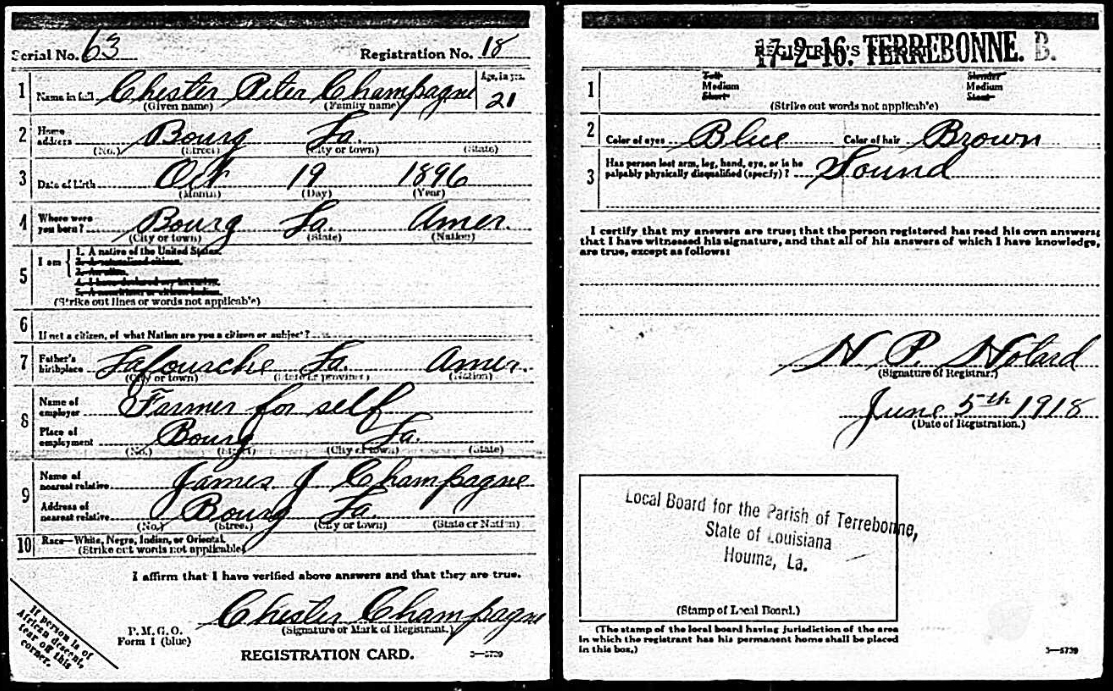 Serial No. 63 Registration No. 18
1 Name in full Chester Peter Champagne Age, in yrs. 21
(Given name) (Family name)
2 Home address Bourg La.
(No.) (Street) (City or town) (State)
3 Date of birth Oct 19 1896
(Month) (Day) (Year)
4 Where were you born? Bourg La. Amer.
(City or town) (State) (Nation)
5 I am
1. A native of the United States.
2. A naturalized citizen.
3. An alien.
4. I have declared my intention.
5. A noncitizen or citizen Indian.
(Strike out lines or words not applicable)
6 If not a citizen, of what Nation are you a citizen or subject?
7 Father's birthplace Lafourche La. Amer.
(City or town) (State or province) (Nation)
8 Name of employer Farmer for self
Place of employment Bourg La.
(No.) (Street) (City or town) (State)
9 Name of nearest relative James J Champagne
Address of nearest relative Bourg La.
(No.) (Street.) (City or town) (State or Nation)
10 Race—White, Negro, Indian, or Oriental.
(Strike out words not applicable)
I affirm that I have verified above answers and that they are true.
Chester Champagne
(Signature or Mark of Registrant.)
P.M.G.O.
Form 1 (blue)
REGISTRATION CARD.
3—5739
If person is of
African descent,
tear off this
corner.
REGISTRAR'S REPORT
17-2-16. TERREBONNE. B.
1 Tall Slender
Medium Medium
Short Stout
(Strike out words not applicable)
2 Color of eyes Blue Color of hair Brown
3 Has person lost arm, leg, hand, eye, or is he
palpably physically disqualified (specify)? Sound
I certify that my answers are true; that the person registered has read his own answers;
that I have witnessed his signature, and that all of his answers of which I have knowledge,
are true, except as follows:
(Signature of Registrar.)
June 5th 1918
(Date of Registration.)
Local Board for the Parish of Terrebonne,
State of Louisiana
Houma, La.
(Stamp of Local Board.)
(The stamp of the local board having jurisdiction of the area
in which the registrant has his permanent home shall be placed
in this box.)
3—5739